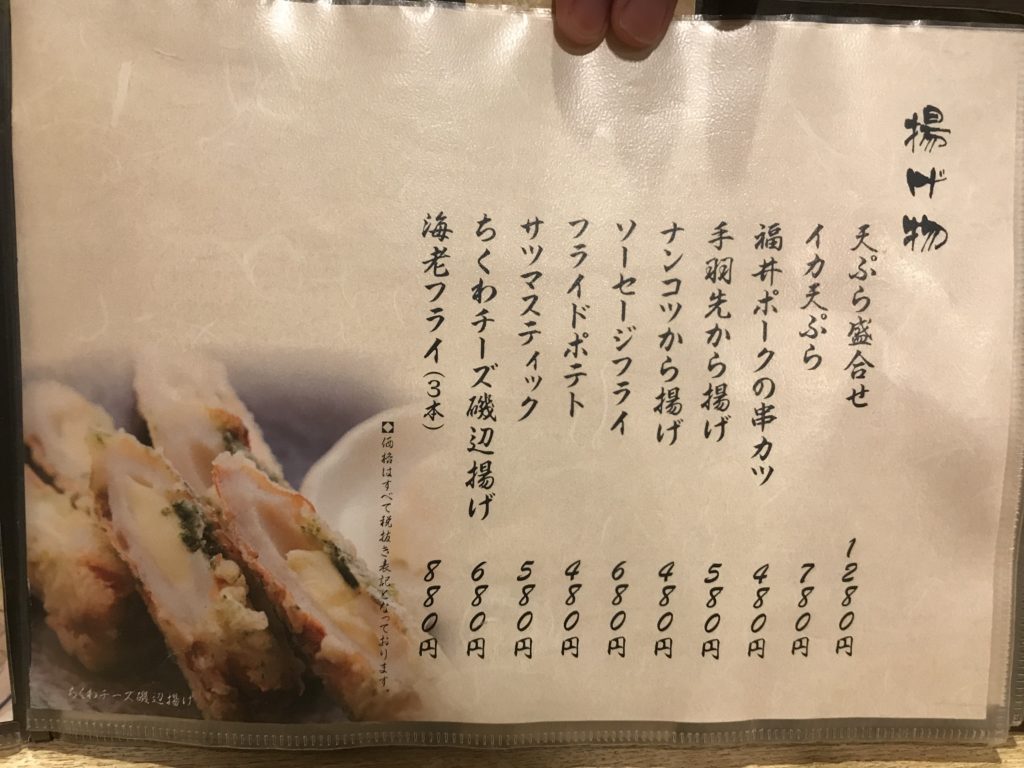 揚げ物
天ぷら盛合せ 1280円
イカ天ぷら 780円
福井ポークの串カツ 480円
手羽先から揚げ 580円
ナンコツから揚げ 480円
ソーセージフライ 680円
フライドポテト 480円
サツマスティック 580円
ちくわチーズ磯辺揚げ 680円
海老フライ(3本) 880円
◆価格はすべて税抜き表記となっております。
ちくわチーズ磯辺揚げ